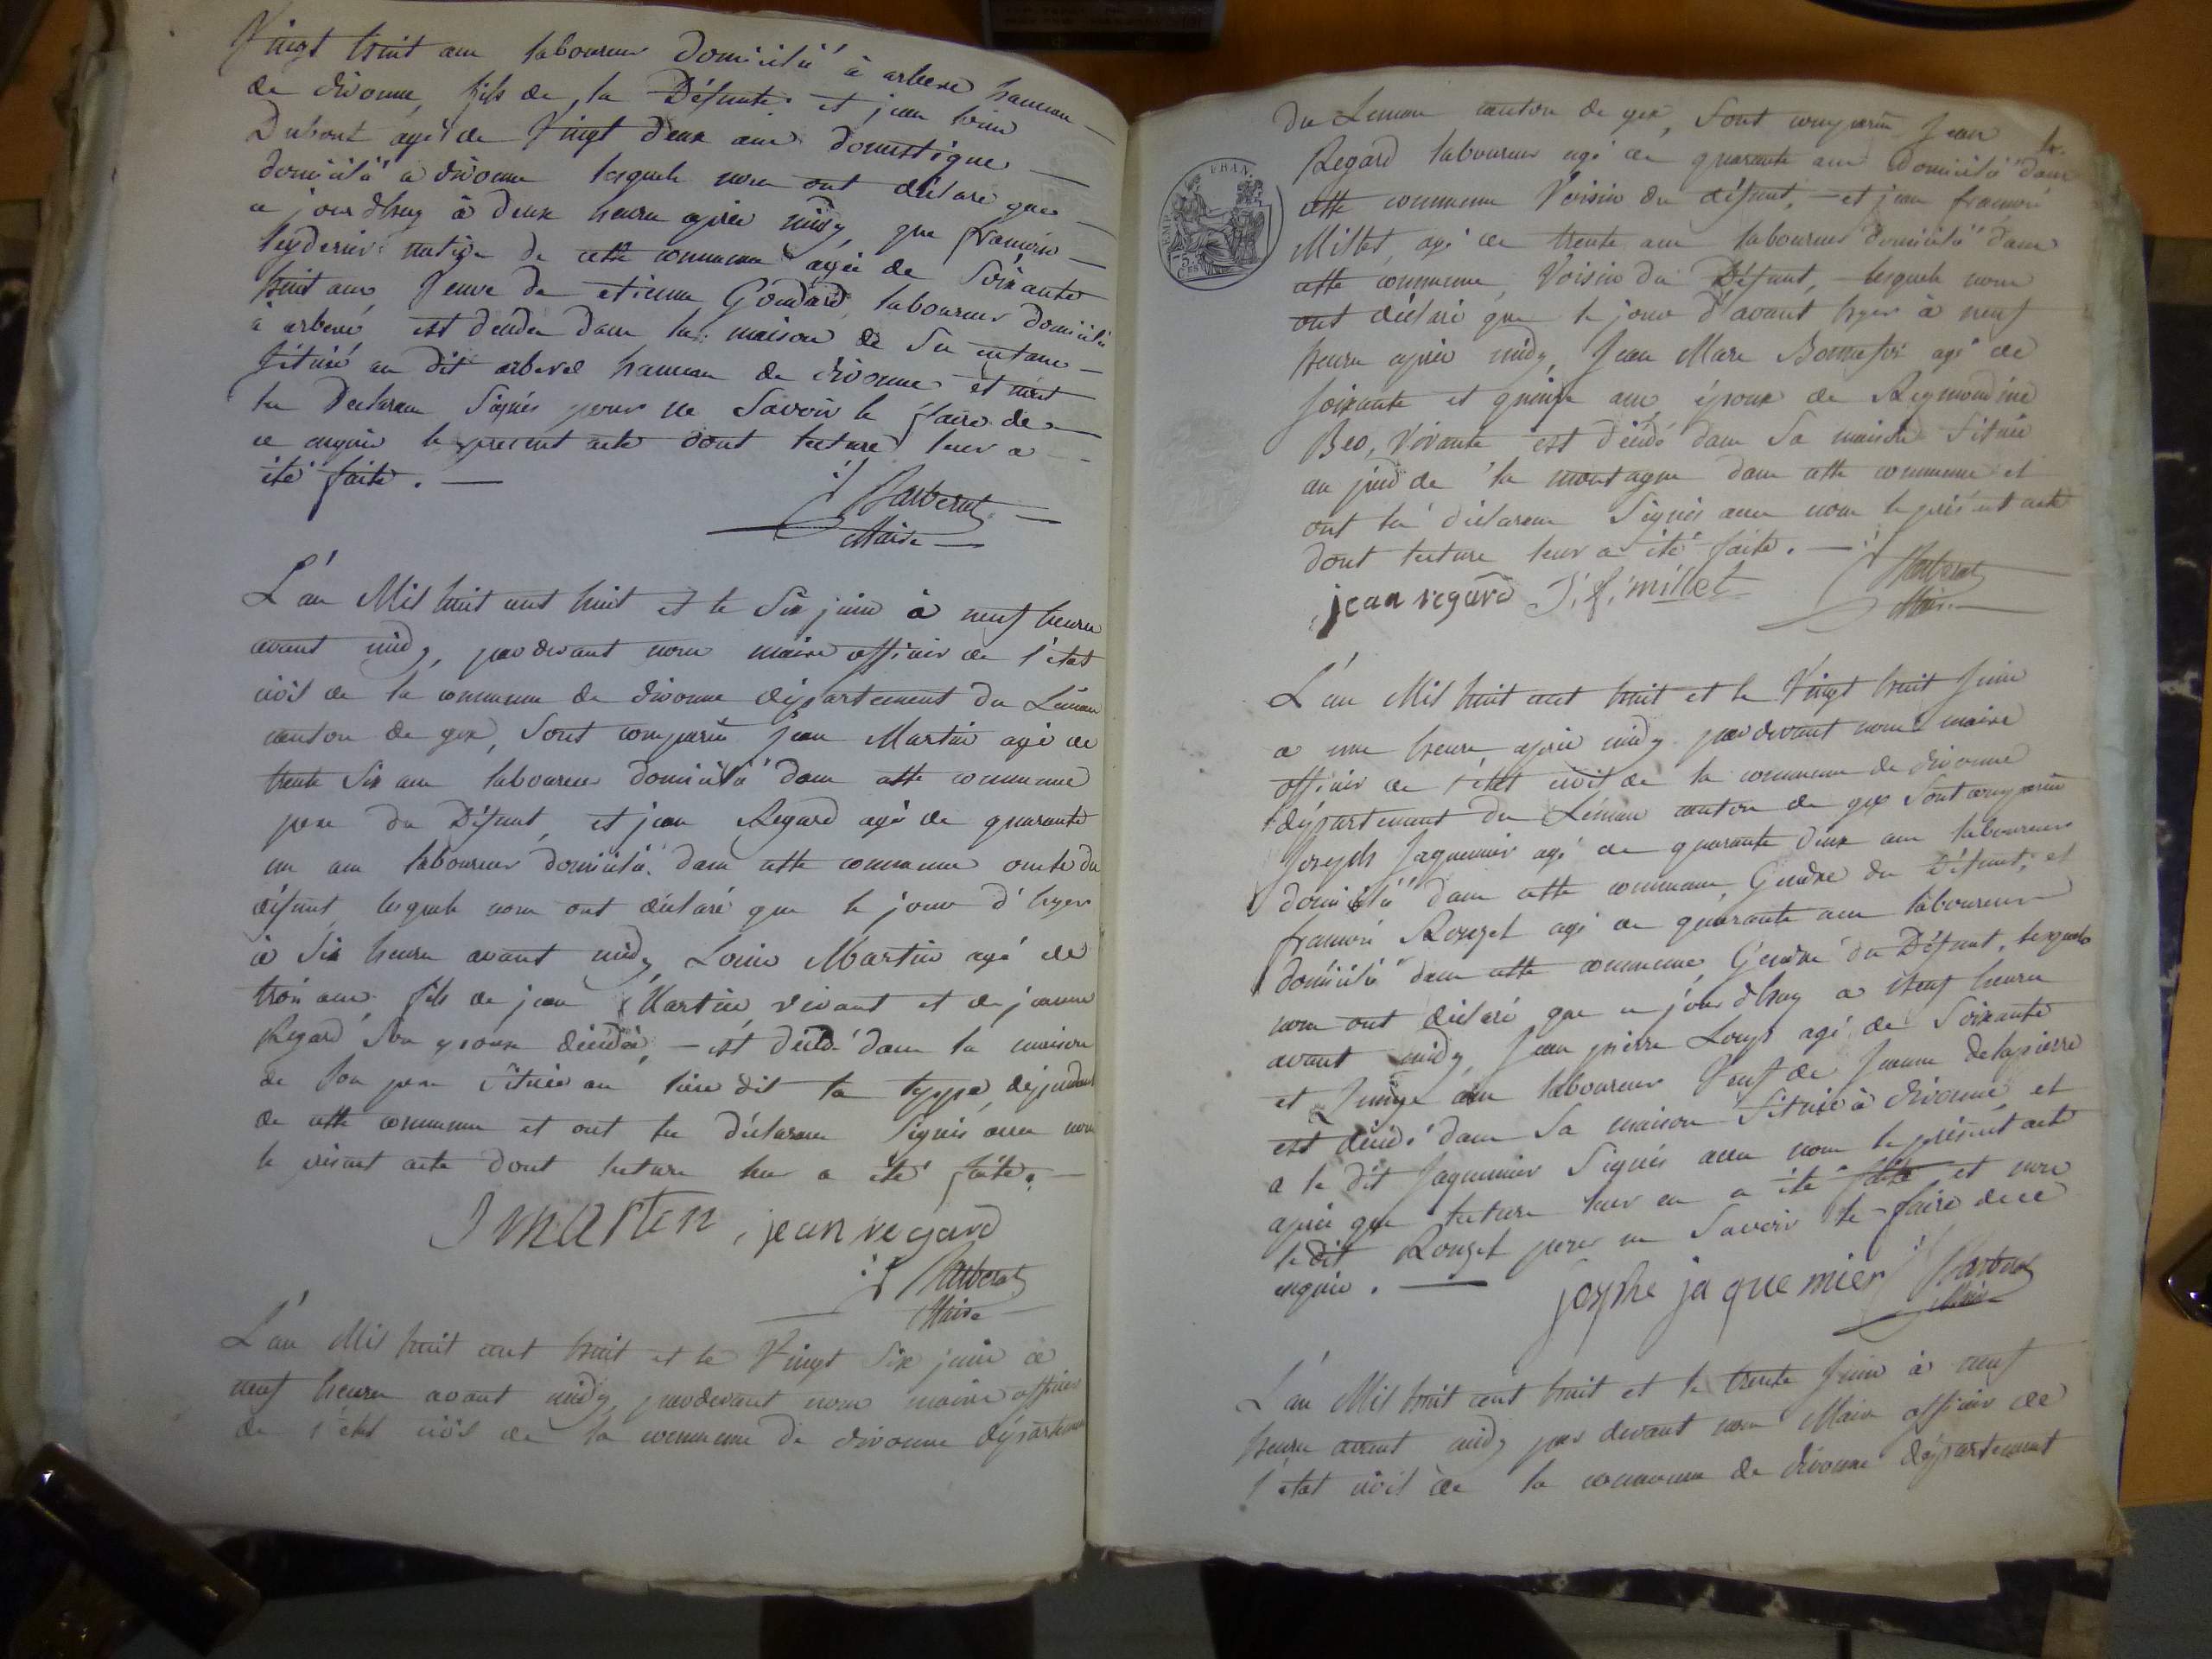 Vingt huit ans laboureur domicilié à arbere hameau
de divonne, fils de la Défunte et jean loui
Dubout agé de Vingt deux ans domestique
domicilié a divonne lesquels nous ont déclaré que
ce jourdhuy à deux heures après midy, que françoise
native de cette commune agée de Soixante
huit ans, Veuve de etienne Goudard laboureur domicilié
à arbere est décédée dans la maison de Ses enfans
Située au dit arbere hameau de divonne et n'ont
les Declarans Signés pour ne Savoir le faire de
ce enquis le present acte dont lecture leur a
été faite.
Maire
L'an Mil huit cent huit et le Six juin à neuf heures
avant midy, pardevant nous maire officier de l'état
civil de la commune de divonne département du Léman
canton de gex, Sont comparus jean Martin agé de
trente Six ans laboureur domicilié dans cette commune
pere du Défunt, et jean Regard agé de quarante
un ans laboureur domicilié dans cette commune oncle du
défunt, lesquels nous ont déclaré que le jour d'hyer
à Six heures avant midy Louis Martin agé de
trois ans, fils de jean Martin, vivant et de jeanne
Regard Son epouse décédée, est décédé dans la maison
de Son pere Située au lieu dit la dépendant
de cette commune et ont les déclarans Signés avec nous
le présent acte dont lecture leur a été faite.
J martin, jean regard
Maire
L'an Mil huit cent huit et le Vingt Six juin à
neuf heures avant midy, pardevant nous maire officier
de l'état civil de la commune de divonne département
du Leman canton de gex, Sont comparus Jean
Regard laboureur agé de quarante ans domicilié dans
cette commune Voisin du défunt, et jean françois
Millet, agé de trente ans laboureur domicilié dans
cette commune, Voisin du Défunt, lesquels nous
ont déclaré que le jour d'avant hyer à neuf
heures après midy, Jean Marc agé de
Soixante et quinze ans, époux de Reymondine
Beo, Vivante est décédé dans Sa maison Située
au pied de la montagne dans cette commune et
ont les déclarans Signés avec nous le présent acte
dont lecture leur a été faite.
jean regard J. f. millet
Maire
L'an Mil huit cent huit et le Vingt huit Juin
a une heure après midy pardevant nous maire
officier de l'état civil de la commune de divonne
département du Léman canton de gex Sont comparus
Joseph Jaquemier agé de quarante deux ans laboureur
domicilié dans cette commune, Gendre du Défunt, et
françois Rouget agé de quarante ans laboureur
domicilié dans cette commune, Gendre du Défunt, lesquels
nous ont déclaré que ce jourdhuy à neuf heures
avant midy, Jean pierre Loup agé de Soixante
et quinze ans laboureur Veuf de Jeanne delapierre
est décédé dans Sa maison Située à divonne, et
a le dit Jaquemier Signés avec nous le présent acte
après que lecture leur en a été faite et non
le dit Rouget pour ne Savoir le faire de ce
enquis.
josphe jaquemier
Maire
L'an Mil huit cent huit et le trente Juin à neuf
heures avant midy par devant nous Maire officier de
l'état civil de la commune de divonne département